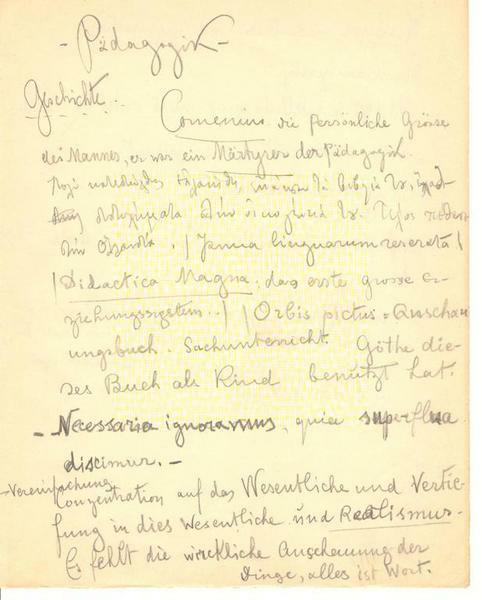 - Pädagogik -
Geschichte.
Comenius die persönliche Grösse
des Mannes, er war ein Märtyrer der Pädagogik.
Πολύ τὰ βιβλία του,
στὴν οἰκογένειά του. Τέλος
στὴν Ὁλλανδία. | Janua linguarum reserata |
| Didactica Magna, das erste grosse Er-
ziehungssystem.. | | Orbis pictus = Anschau
ungsbuch. Sachunterricht. Göthe die-
ses Buch als Kind benützt hat.
- Necessaria ignoramus, quia superflua
discimus. -
- Vereinfachung
Conzentration auf das Wesentliche und Vertie-
fung in dies Wesentliche und Realismus.
Es fehlt die wirkliche Anschauung der
Dinge, alles ist Wort.